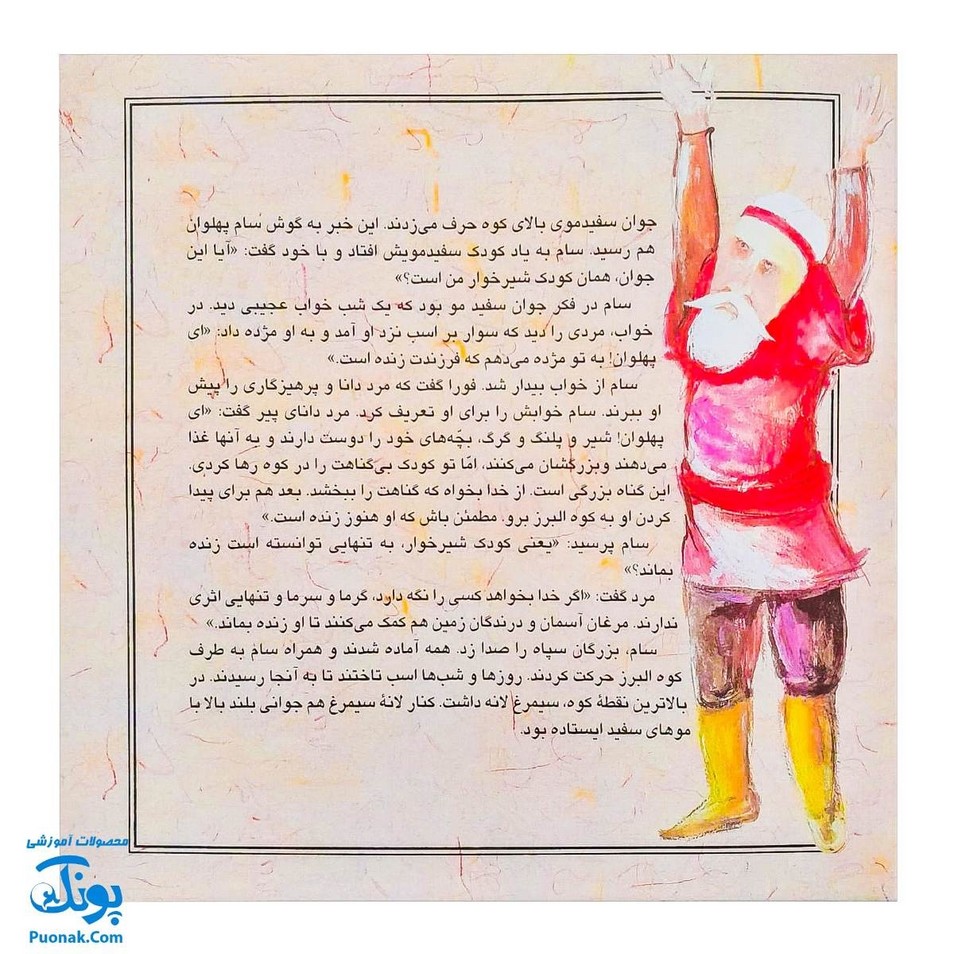 جوان سفیدموی بالای کوه حرف می‌زدند. این خبر به گوش سام پهلوان
هم رسید. سام به یاد کودک سفیدمویش افتاد و با خود گفت: «آیا این
جوان، همان کودک شیرخوار من است؟»
سام در فکر جوان سفید مو بود که یک شب خواب عجیبی دید. در
خواب، مردی را دید که سوار بر اسب نزد او آمد و به او مژده داد: «ای
پهلوان! به تو مژده می‌دهم که فرزندت زنده است.»
سام از خواب بیدار شد. فورا گفت که مرد دانا و پرهیزگاری را پیش
او ببرند. سام خوابش را برای او تعریف کرد. مرد دانای پیر گفت: «ای
پهلوان! شیر و پلنگ و گرگ، بچّه‌های خود را دوست دارند و به آنها غذا
می‌دهند وبزرگشان می‌کنند، امّا تو کودک بی‌گناهت را در کوه رها کردی.
این گناه بزرگی است. از خدا بخواه که گناهت را ببخشد. بعد هم برای پیدا
کردن او به کوه البرز برو. مطمئن باش که او هنوز زنده است.»
سام پرسید: «یعنی کودک شیرخوار، به تنهایی توانسته است زنده
بماند؟»
مرد گفت: «اگر خدا بخواهد کسی را نگه دارد، گرما و سرما و تنهایی اثری
ندارند. مرغان آسمان و درندگان زمین هم کمک می‌کنند تا او زنده بماند.»
سام، بزرگان سپاه را صدا زد. همه آماده شدند و همراه سام به طرف
کوه البرز حرکت کردند. روزها و شب‌ها اسب تاختند تا به آنجا رسیدند. در
بالاترین نقطهٔ کوه، سیمرغ لانه داشت. کنار لانهٔ سیمرغ هم جوانی بلند بالا با
موهای سفید ایستاده بود.
محصولات آموزشی
پونک
Puonak.Com